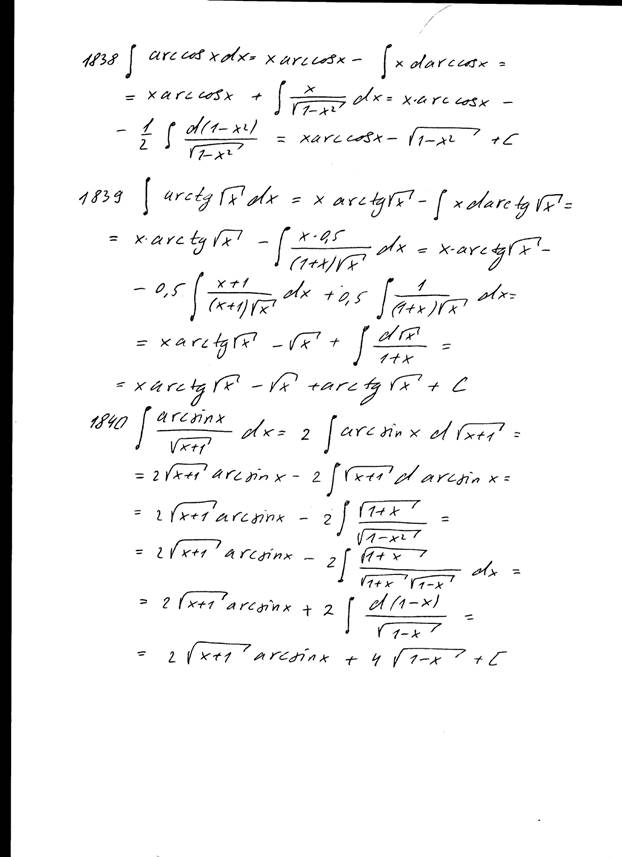 1838 ∫ arccosxdx = xarccosx - ∫ xdarccosx =
= xarccosx + ∫ x/√(1-x²) dx = x·arccosx -
- 1/2 ∫ d(1-x²)/√(1-x²) = xarccosx - √(1-x²) + C
1839 ∫ arctg√x dx = x arctg√x - ∫ xdarctg√x =
= x·arctg√x - ∫ x·0,5/((1+x)√x) dx = x·arctg√x -
- 0,5 ∫ (x+1)/((x+1)√x) dx + 0,5 ∫ 1/((1+x)√x) dx =
= xarctg√x - √x + ∫ d√x/(1+x) =
= xarctg√x - √x + arctg√x + C
1840 ∫ arcsinx/√(x+1) dx = 2 ∫ arcsinx d√(x+1) =
= 2√(x+1) arcsinx - 2 ∫ √(x+1) d arcsinx =
= 2√(x+1) arcsinx - 2 ∫ √(1+x)/√(1-x²) =
= 2√(x+1) arcsinx - 2 ∫ √(1+x)/(√(1+x) √(1-x)) dx =
= 2√(x+1) arcsinx + 2 ∫ d(1-x)/√(1-x) =
= 2√(x+1) arcsinx + 4√(1-x) + C